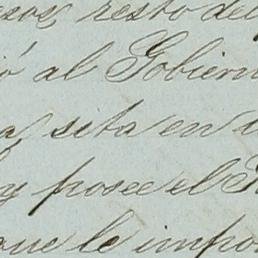 resto de
ó al Gobiern
sita en
y posee el
que le impo